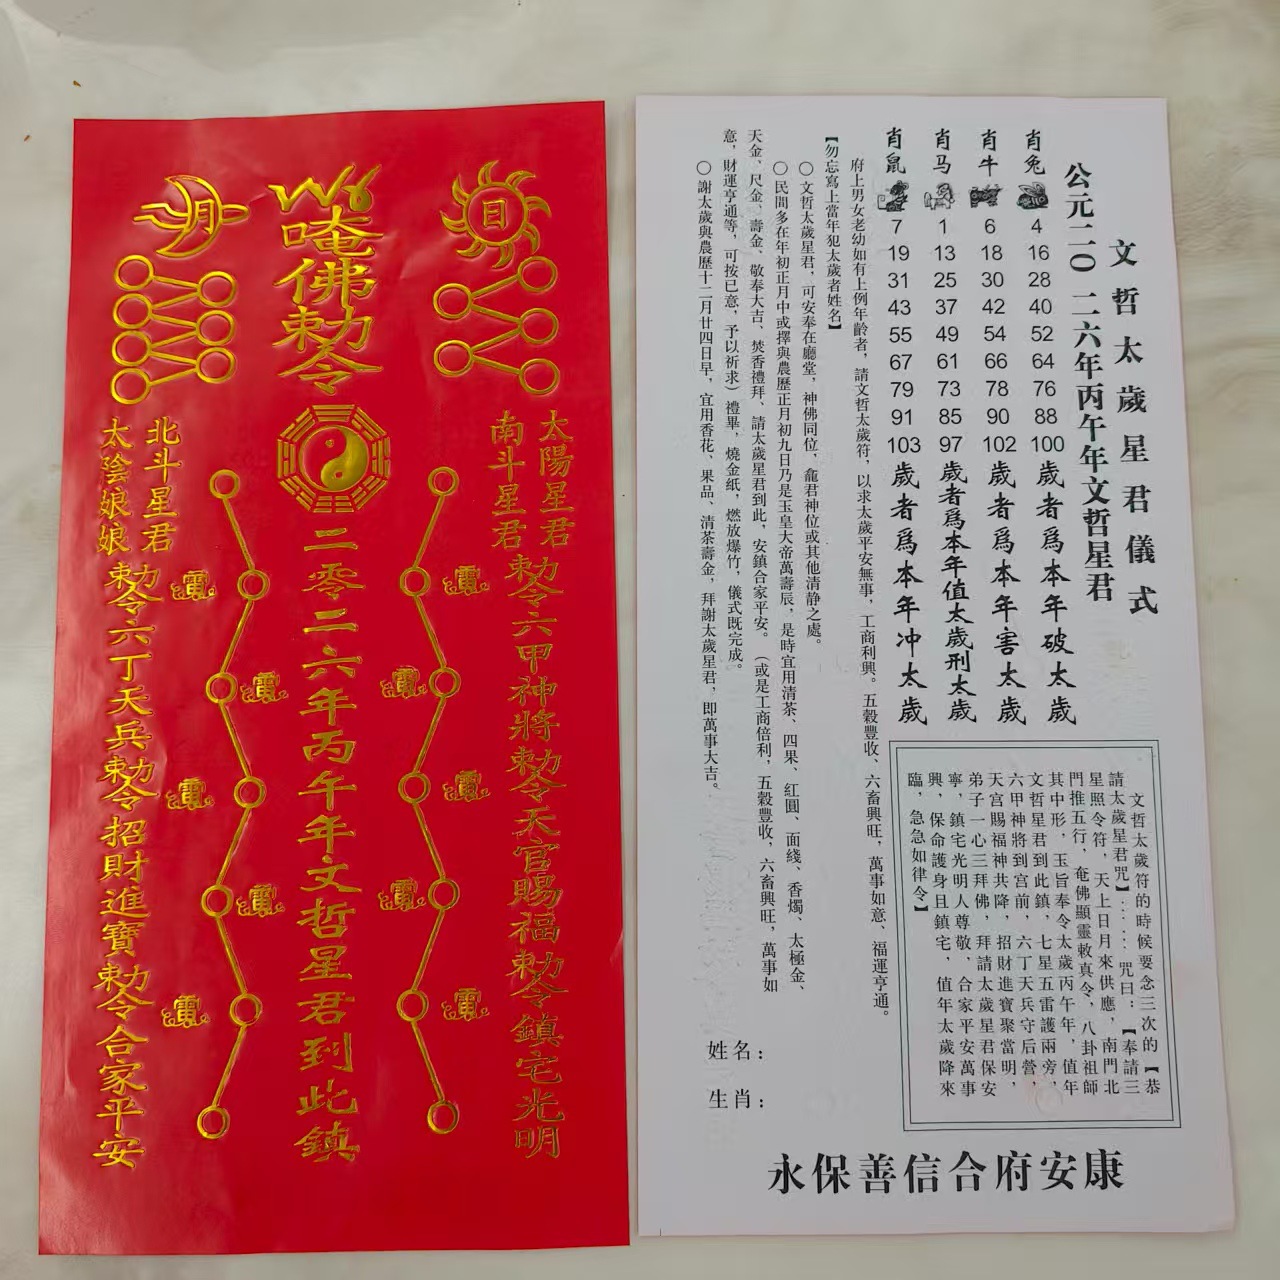 日
月
唵佛勅令
太陽星君
南斗星君
北斗星君
太陰娘娘
勅令六甲神將勅令天官賜福勅令鎮宅光明
二零二六年丙午年文哲星君到此鎮
勅令六丁天兵勅令招財進寶勅令合家平安
電
電
電
電
電
電
電
電
電
電
文哲太歲星君儀式
公元二〇二六年丙午年文哲星君
肖兔 4 16 28 40 52 64 76 88 100 歲者爲本年破太歲
肖牛 6 18 30 42 54 66 78 90 102 歲者爲本年害太歲
肖马 1 13 25 37 49 61 73 85 97 歲者爲本年值太歲刑太歲
肖鼠 7 19 31 43 55 67 79 91 103 歲者爲本年冲太歲
府上男女老幼如有上例年齡者，請文哲太歲符，以求太歲平安無事，工商利興。五穀豐收、六畜興旺，萬事如意、福運亨通。
【勿忘寫上當年犯太歲者姓名】
〇 文哲太歲星君，可安奉在廳堂，神佛同位，龕君神位或其他清静之處。
〇 民間多在年初正月中或擇與農歷正月初九日乃是玉皇大帝萬壽辰，是時宜用清茶、四果、紅圓、面綫、香燭、太極金、
天金、尺金、壽金、敬奉大吉、焚香禮拜、請太歲星君到此，安鎮合家平安。（或是工商倍利，五穀豐收，六畜興旺，萬事如
意，財運亨通等，可按已意，予以祈求）禮畢，燒金紙，燃放爆竹，儀式既完成。
〇 謝太歲與農歷十二月廿四日早，宜用香花、果品、清茶壽金，拜謝太歲星君，即萬事大吉。
文哲太歲符的時候要念三次的【恭
請太歲星君咒】……咒曰：【奉請三
星照令符，天上日月來供應，南門北
門推五行，奄佛顯靈敕真令，八卦祖師
其中形，玉旨奉令太歲丙午年，值年
文哲星君到此鎮，七星五雷護兩旁，
六甲神將到宫前，六丁天兵守后營，
天宫賜福神共降，招財進寶聚當明，
弟子一心三拜佛，拜請太歲星君保安
寧，鎮宅光明人尊敬、合家平安萬事
興，保命護身且鎮宅，值年太歲降來
臨，急急如律令】
姓名：
生肖：
永保善信合府安康